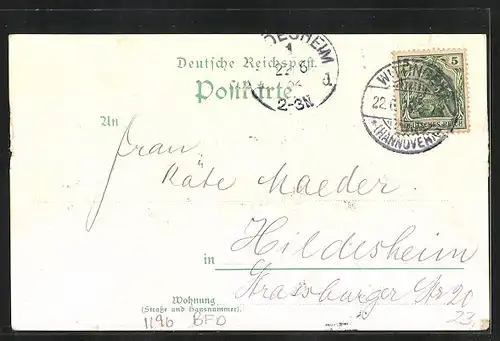 DESHEIM
1
22 6
d.
2-3N
Deutsche Reichspost
Postkarte
5
22.6
(HANNOVER)
An
Frau
Käte Maeder.
in Hildesheim
Strassburger Str 20
Wohnung
(Straße und Hausnummer)
23.
1196 BFD